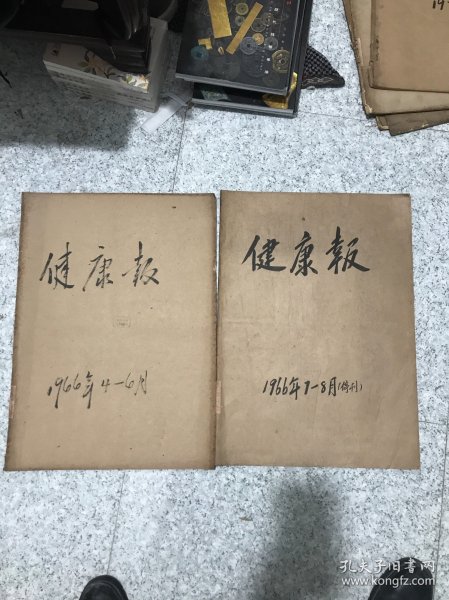 健康报
1966年4-6月
健康報
1966年7-8月(停刊)
19
孔夫子旧书网
www.kongfz.com